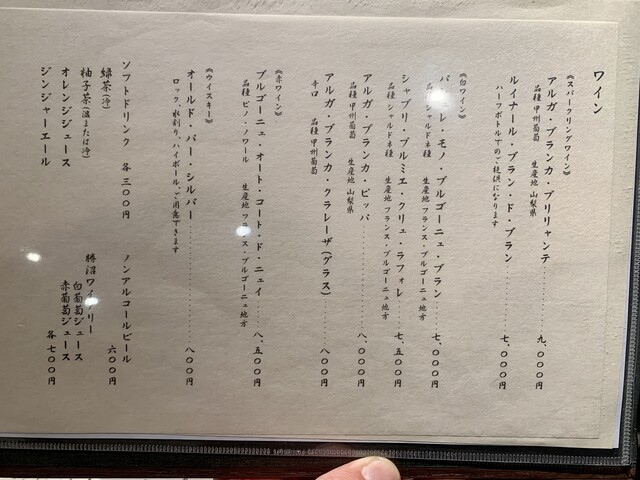 ワイン
《スパークリングワイン》
アルガ・ブランカ・ブリリャンテ……… 九、〇〇〇円
品種 甲州葡萄　生産地 山梨県
ルイナール・ブラン・ド・ブラン……… 七、〇〇〇円
ハーフボトルでのご提供になります
《白ワイン》
モノ・ブルゴーニュ・ブラン……… 七、〇〇〇円
シャルドネ種　生産地 フランス・ブルゴーニュ地方
シャブリ・プルミエ・クリュ・ラフォレ 七、五〇〇円
品種 シャルドネ種　生産地 フランス・ブルゴーニュ地方
アルガ・ブランカ・ピッパ……… 八、〇〇〇円
品種 甲州葡萄　生産地 山梨県
アルガ・ブランカ・クラレーザ(グラス)……… 八〇〇円
辛口　品種 甲州葡萄
《赤ワイン》
ブルゴーニュ・オート・コート・ド・ニュイ 八、五〇〇円
品種 ピノ・ノワール　生産地 フランス・ブルゴーニュ地方
《ウイスキー》
オールド・パー・シルバー……… 八〇〇円
ロック、水割り、ハイボール、ご用意できます
ソフトドリンク　各三〇〇円
緑茶(冷)
柚子茶(温または冷)
オレンジジュース
ジンジャーエール
ノンアルコールビール
六〇〇円
勝沼ワイナリー
白葡萄ジュース
赤葡萄ジュース
各 七〇〇円